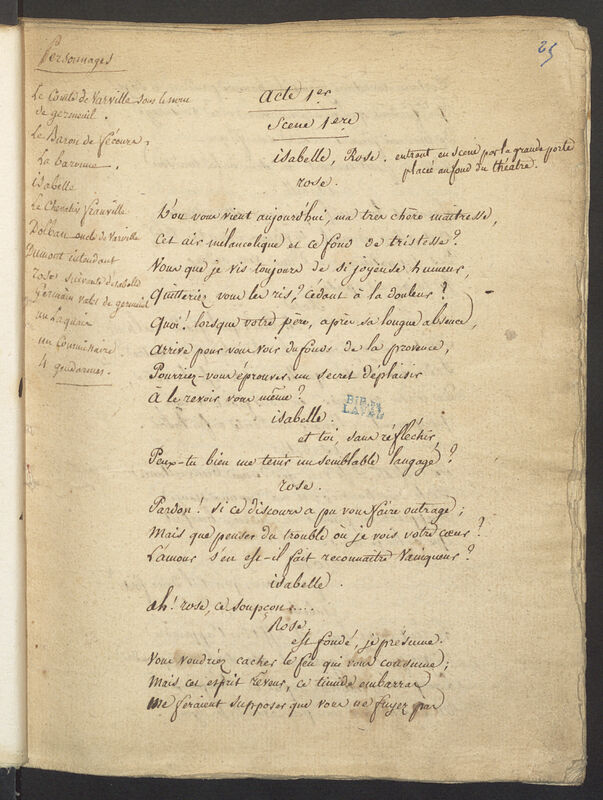 25
Personnages
Le Comte de Varville sous le nom
de germeuil.
Le Baron de fécour.
La baronne.
isabelle
Le Chevalier franville
Dolban oncle de Varville
Dumont intendant
rose suivante d'isabelle
Germain valet de germeuil
un Laquais
un Commissaire
4 gendarmes.
Acte 1er
Scene 1ere
isabelle, Rose. entrant en scene par la grande porte
placée au fond du théatre.
rose.
D'ou vous vient aujourd'hui, ma très chère maitresse,
Cet air mélancolique et ce fond de tristesse?
Vous que je vis toujours de si joyeuse humeur,
Quitteriez vous les ris? Cédant à la douleur?
Quoi! lorsque votre père, après sa longue absence,
arrive pour vous voir du fonds de la provence,
Pourriez-vous éprouver un secret déplaisir
à le revoir vous même?
isabelle.
et toi, sans refléchir,
Peux-tu bien me tenir un semblable langage?
rose.
Pardon! si ce discours a pu vous faire outrage;
Mais que penser du trouble où je vois votre cœur?
L'amour s'en est-il fait reconnaitre Vainqueur?
isabelle.
ah! rose, ce soupçon....
Rose.
est fondé, je présume.
Vous voudriez cacher le feu qui vous consume;
Mais cet esprit rêveur, ce timide embarras
me feraient supposer que vous ne fuyez pas
BIB. DE
LAVAL